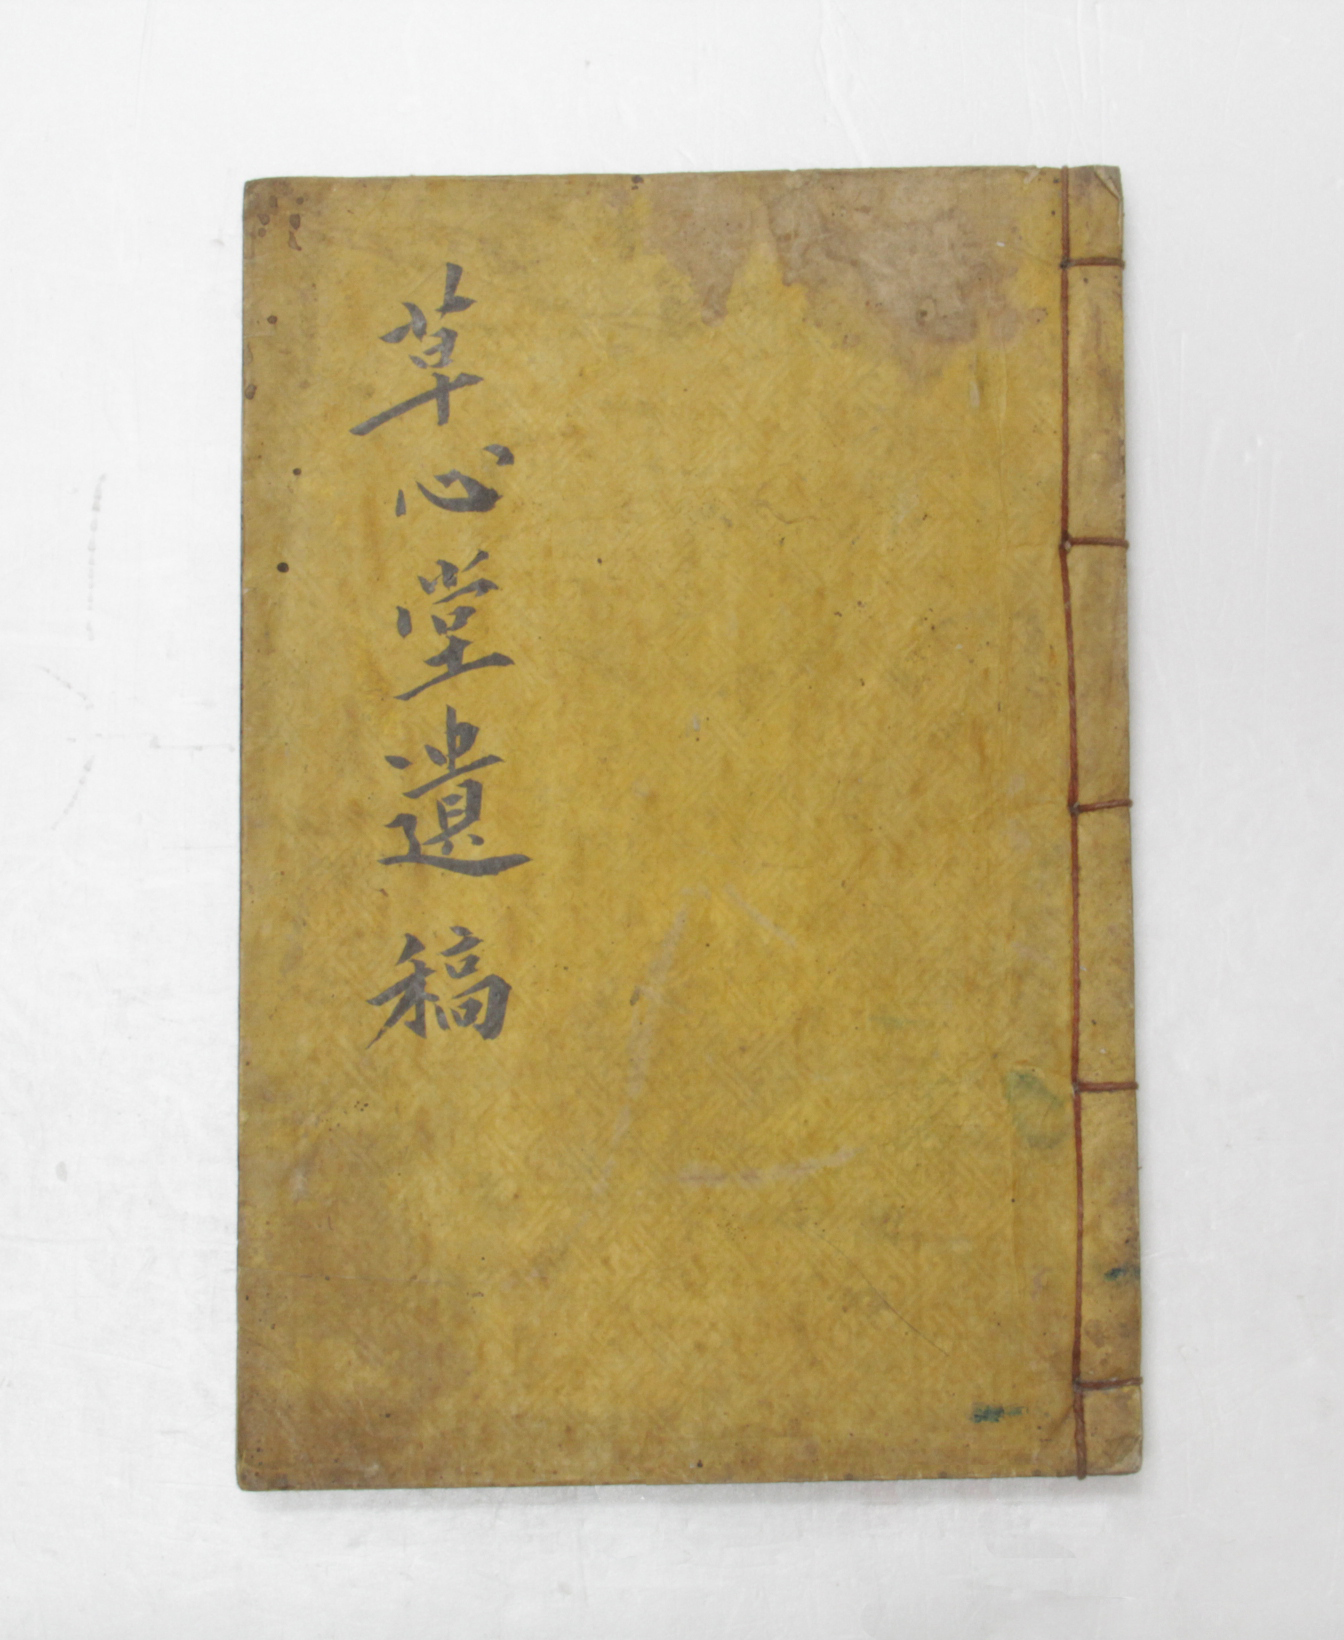 草心堂遺稿